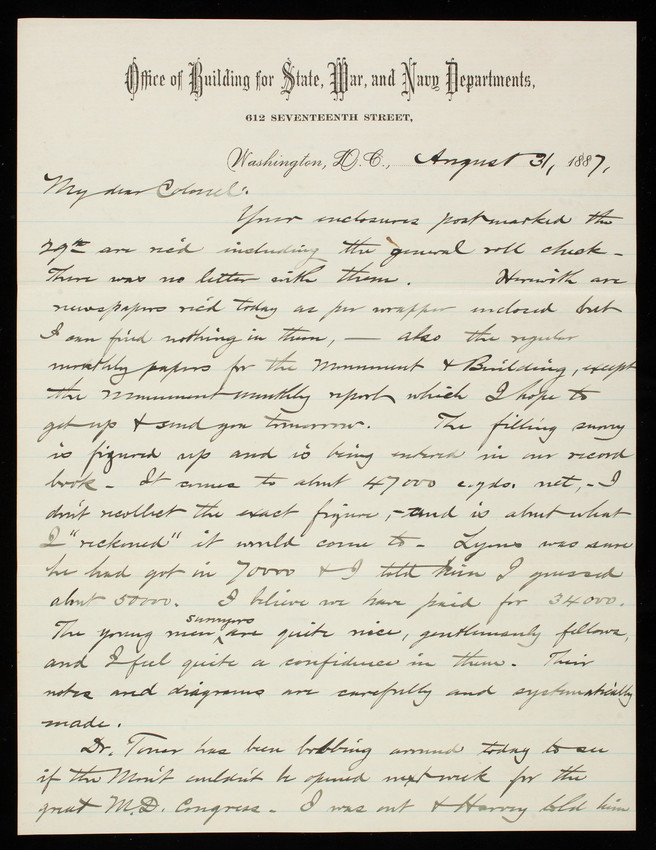 Office of Building for State, War, and Navy Departments,
612 SEVENTEENTH STREET,
Washington, D.C., August 31, 1887,
My dear Colonel:
Your enclosures postmarked the
29th are rec'd including the general roll check -
There was no letter with them. Herewith are
newspapers rec'd today as per wrapper enclosed but
I can find nothing in them, — also the regular
monthly papers for the Monument & Building, except
the Monument monthly report which I hope to
get up & send you tomorrow. The filling survey
is figured up and is being entered in our record
book - It comes to about 47000 c.yds. net, - I
don't recollect the exact figure, - and is about what
I "reckoned" it would come to - Lyons was sure
he had got in 70000 & I told him I guessed
about 50000. I believe we have paid for 34000.
The young men surveyors are quite nice, gentlemanly fellows,
and I feel quite a confidence in them. Their
notes and diagrams are carefully and systematically
made.
Dr. Toner has been bobbing around today to see
if the Mon't couldn't be opened next week for the
great M.D. Congress - I was out & Harvey told him